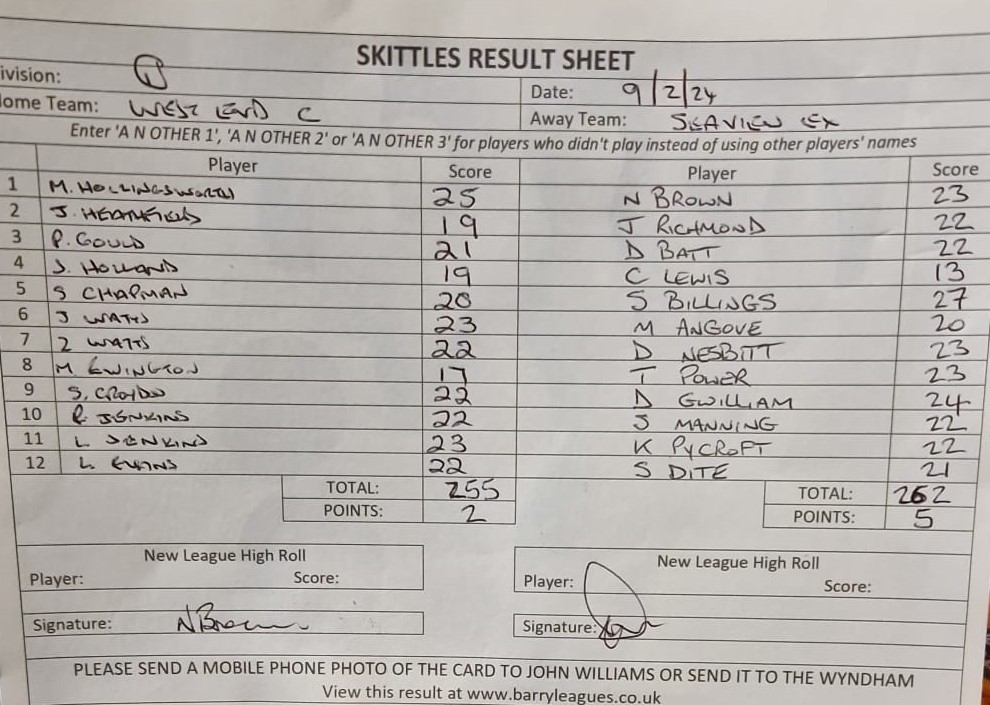 SKITTLES RESULT SHEET
ivision: 1 Date: 9/2/24
ome Team: WEST END C Away Team: SEAVIEW EX
Enter 'A N OTHER 1', 'A N OTHER 2' or 'A N OTHER 3' for players who didn't play instead of using other players' names
Player Score Player Score
1 M. HOLLINGSWORTH 25 N BROWN 23
2 J. HEATHFIELD 19 J RICHMOND 22
3 P. GOULD 21 D BATT 22
4 J. HOLLAND 19 C LEWIS 13
5 S CHAPMAN 20 S BILLINGS 27
6 J WATTS 23 M ANGOVE 20
7 Z WATTS 22 D NESBITT 23
8 M EWINGTON 17 T POWER 23
9 S. CROYDON 22 D GWILLIAM 24
10 R JENKINS 22 J MANNING 22
11 L JENKINS 23 K PYCROFT 22
12 L EVANS 22 S DITE 21
TOTAL: 255 TOTAL: 262
POINTS: 2 POINTS: 5
New League High Roll New League High Roll
Player: Score: Player: Score:
Signature: N Brown Signature:
PLEASE SEND A MOBILE PHONE PHOTO OF THE CARD TO JOHN WILLIAMS OR SEND IT TO THE WYNDHAM
View this result at www.barryleagues.co.uk